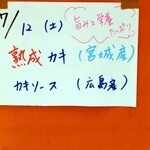 7/12(土)
旨みと栄養たっぷり
熟成カキ(宮城産)
カキソース(広島産)